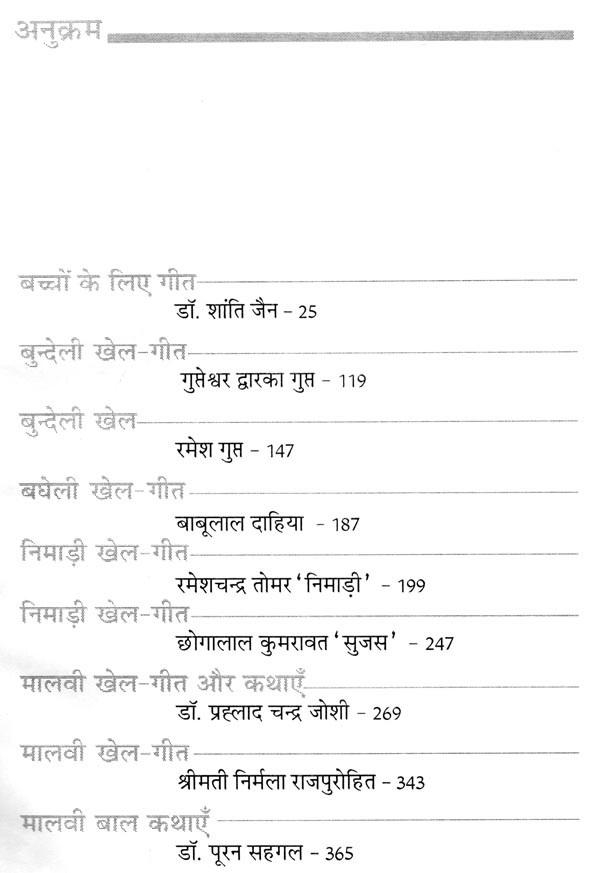 अनुक्रम
बच्चों के लिए गीत
डॉ. शांति जैन – 25
बुन्देली खेल-गीत
गुप्तेश्वर द्वारका गुप्त – 119
बुन्देली खेल
रमेश गुप्त – 147
बघेली खेल-गीत
बाबूलाल दाहिया – 187
निमाड़ी खेल-गीत
रमेशचन्द्र तोमर ‘निमाड़ी’ – 199
निमाड़ी खेल-गीत
छोगालाल कुमरावत ‘सुजस’ – 247
मालवी खेल-गीत और कथाएँ
डॉ. प्रह्लाद चन्द्र जोशी – 269
मालवी खेल-गीत
श्रीमती निर्मला राजपुरोहित – 343
मालवी बाल कथाएँ
डॉ. पूरन सहगल – 365